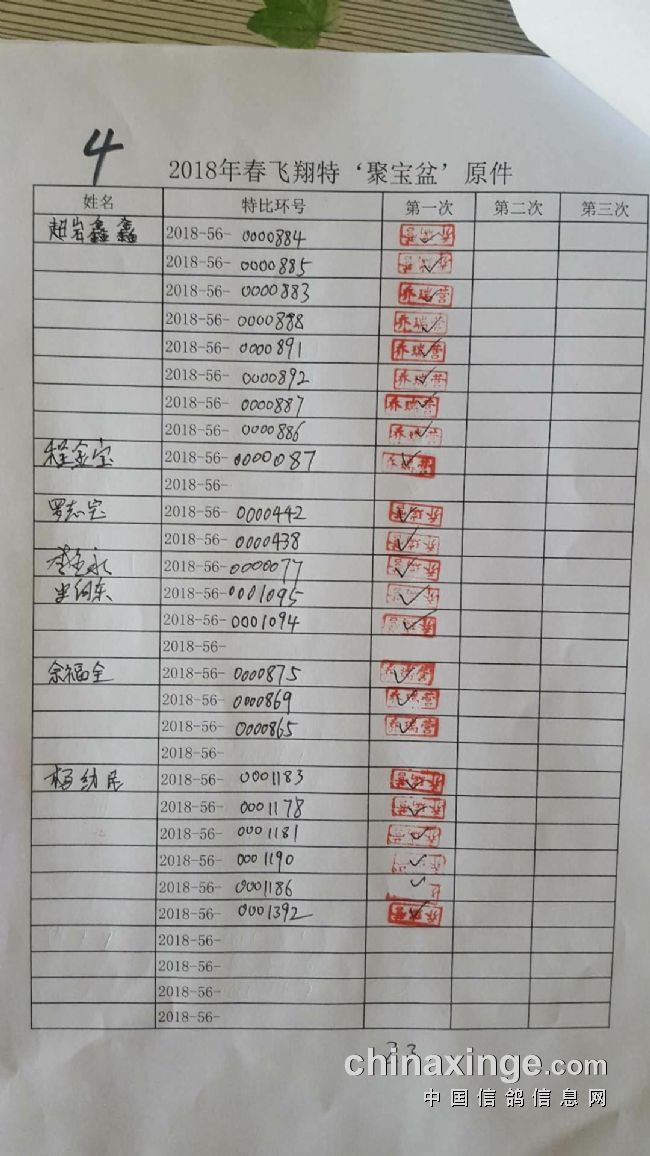 4
2018年春飞翔特‘聚宝盆’原件
姓名 特比环号 第一次 第二次 第三次
赵岩鑫鑫 2018-56- 0000884
2018-56- 0000885
2018-56- 0000883 乔瑞营
2018-56- 0000888 乔瑞营
2018-56- 0000891 乔瑞营
2018-56- 0000892 乔瑞营
2018-56- 0000887 乔瑞营
2018-56- 0000886 乔瑞营
程金宝 2018-56- 0000087
2018-56-
罗志宝 2018-56- 0000442
2018-56- 0000438
李金永 2018-56- 0000077
2018-56- 0001095
2018-56- 0001094
2018-56-
余福全 2018-56- 0000875 乔瑞营
2018-56- 0000869 乔瑞营
2018-56- 0000865 乔瑞营
2018-56-
杨幼民 2018-56- 0001183
2018-56- 0001178
2018-56- 0001181
2018-56- 0001190
2018-56- 0001186
2018-56- 0001392
2018-56-
2018-56-
2018-56-
2018-56-
23
chinaxinge.com
中国信鸽信息网